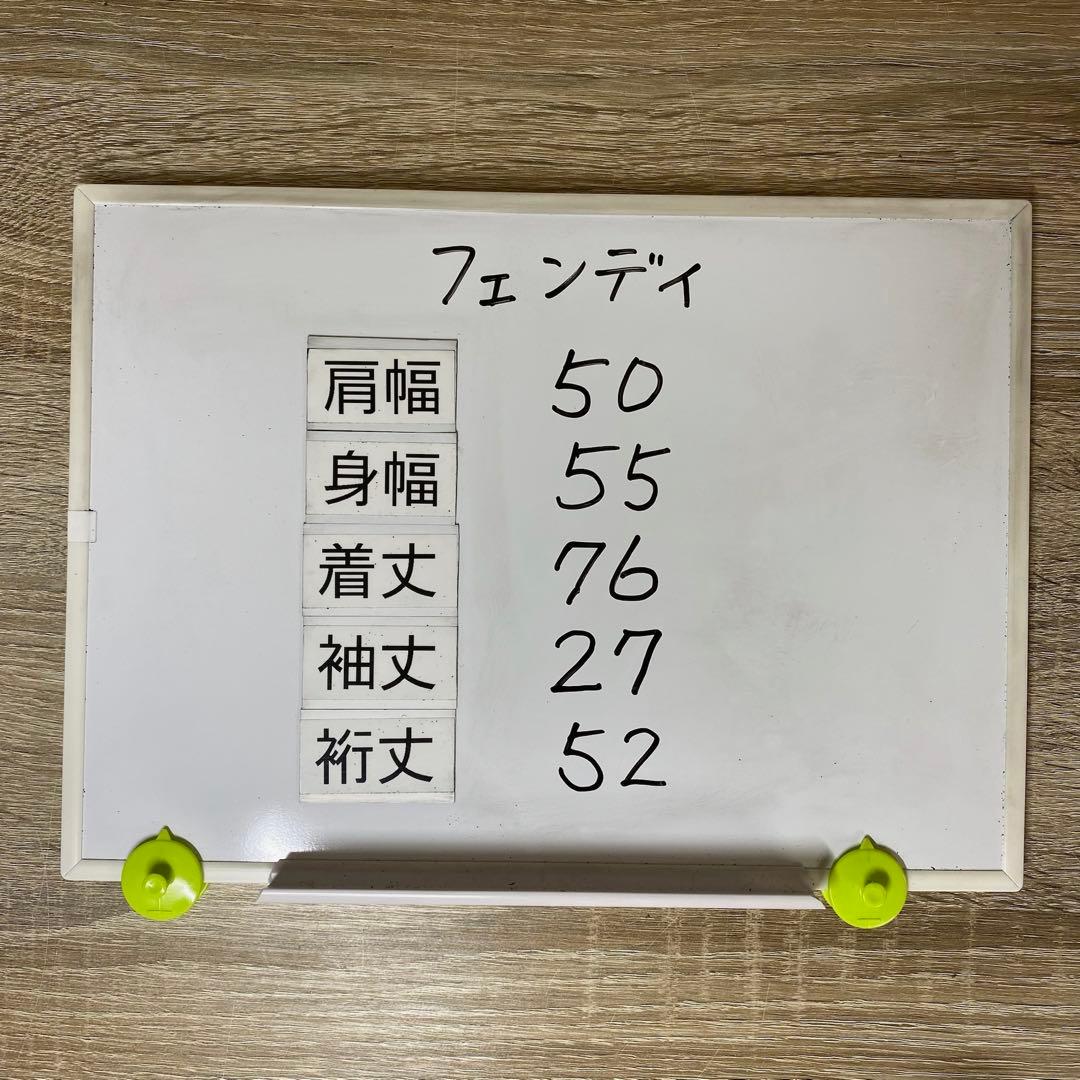 フェンディ
肩幅 50
身幅 55
着丈 76
袖丈 27
裄丈 52